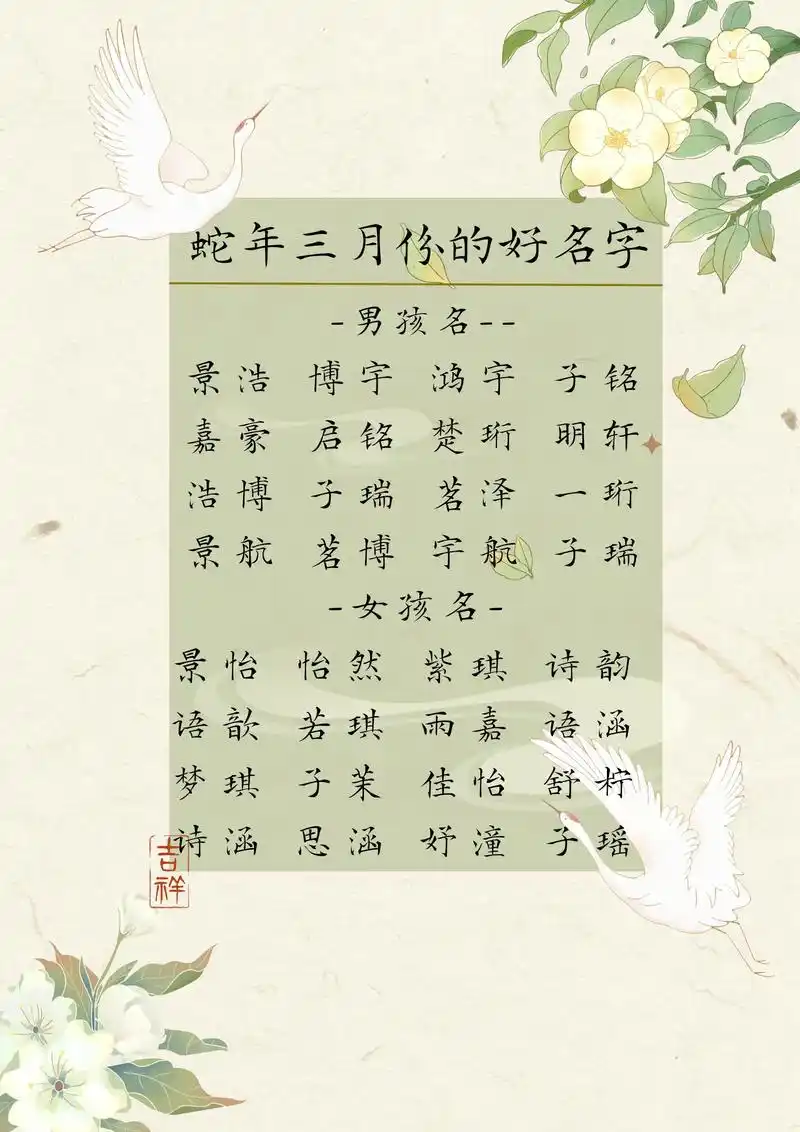 蛇年三月份的好名字
-男孩名--
景浩 博宇 鸿宇 子铭
嘉豪 启铭 楚珩 明轩
浩博 子瑞 茗泽 一珩
景航 茗博 宇航 子瑞
-女孩名-
景怡 怡然 紫琪 诗韵
语歆 若琪 雨嘉 语涵
梦琪 子茉 佳怡 舒柠
诗涵 思涵 妤潼 子瑶
吉祥